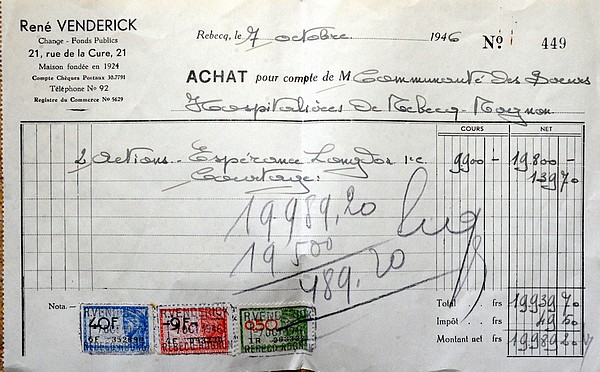 René VENDERICK
Change - Fonds Publics
21, rue de la Cure, 21
Maison fondée en 1924
Compte Chèques Postaux 30.7791
Téléphone No 92
Registre du Commerce No 5629
Rebecq, le 7 octobre 1946 No 449
ACHAT pour compte de M Communauté des Soeurs
Hospitalières de Rebecq-Rognon
COURS NET
2 actions Espérance Longdoz 1e 9900 - 19.800 -
Courtage: 139 70
19989,20
19 500
489.20
Nota. —
40F
9F
0,50
Total frs 19939 70
Impôt frs 49 50
Montant net frs 19989 20